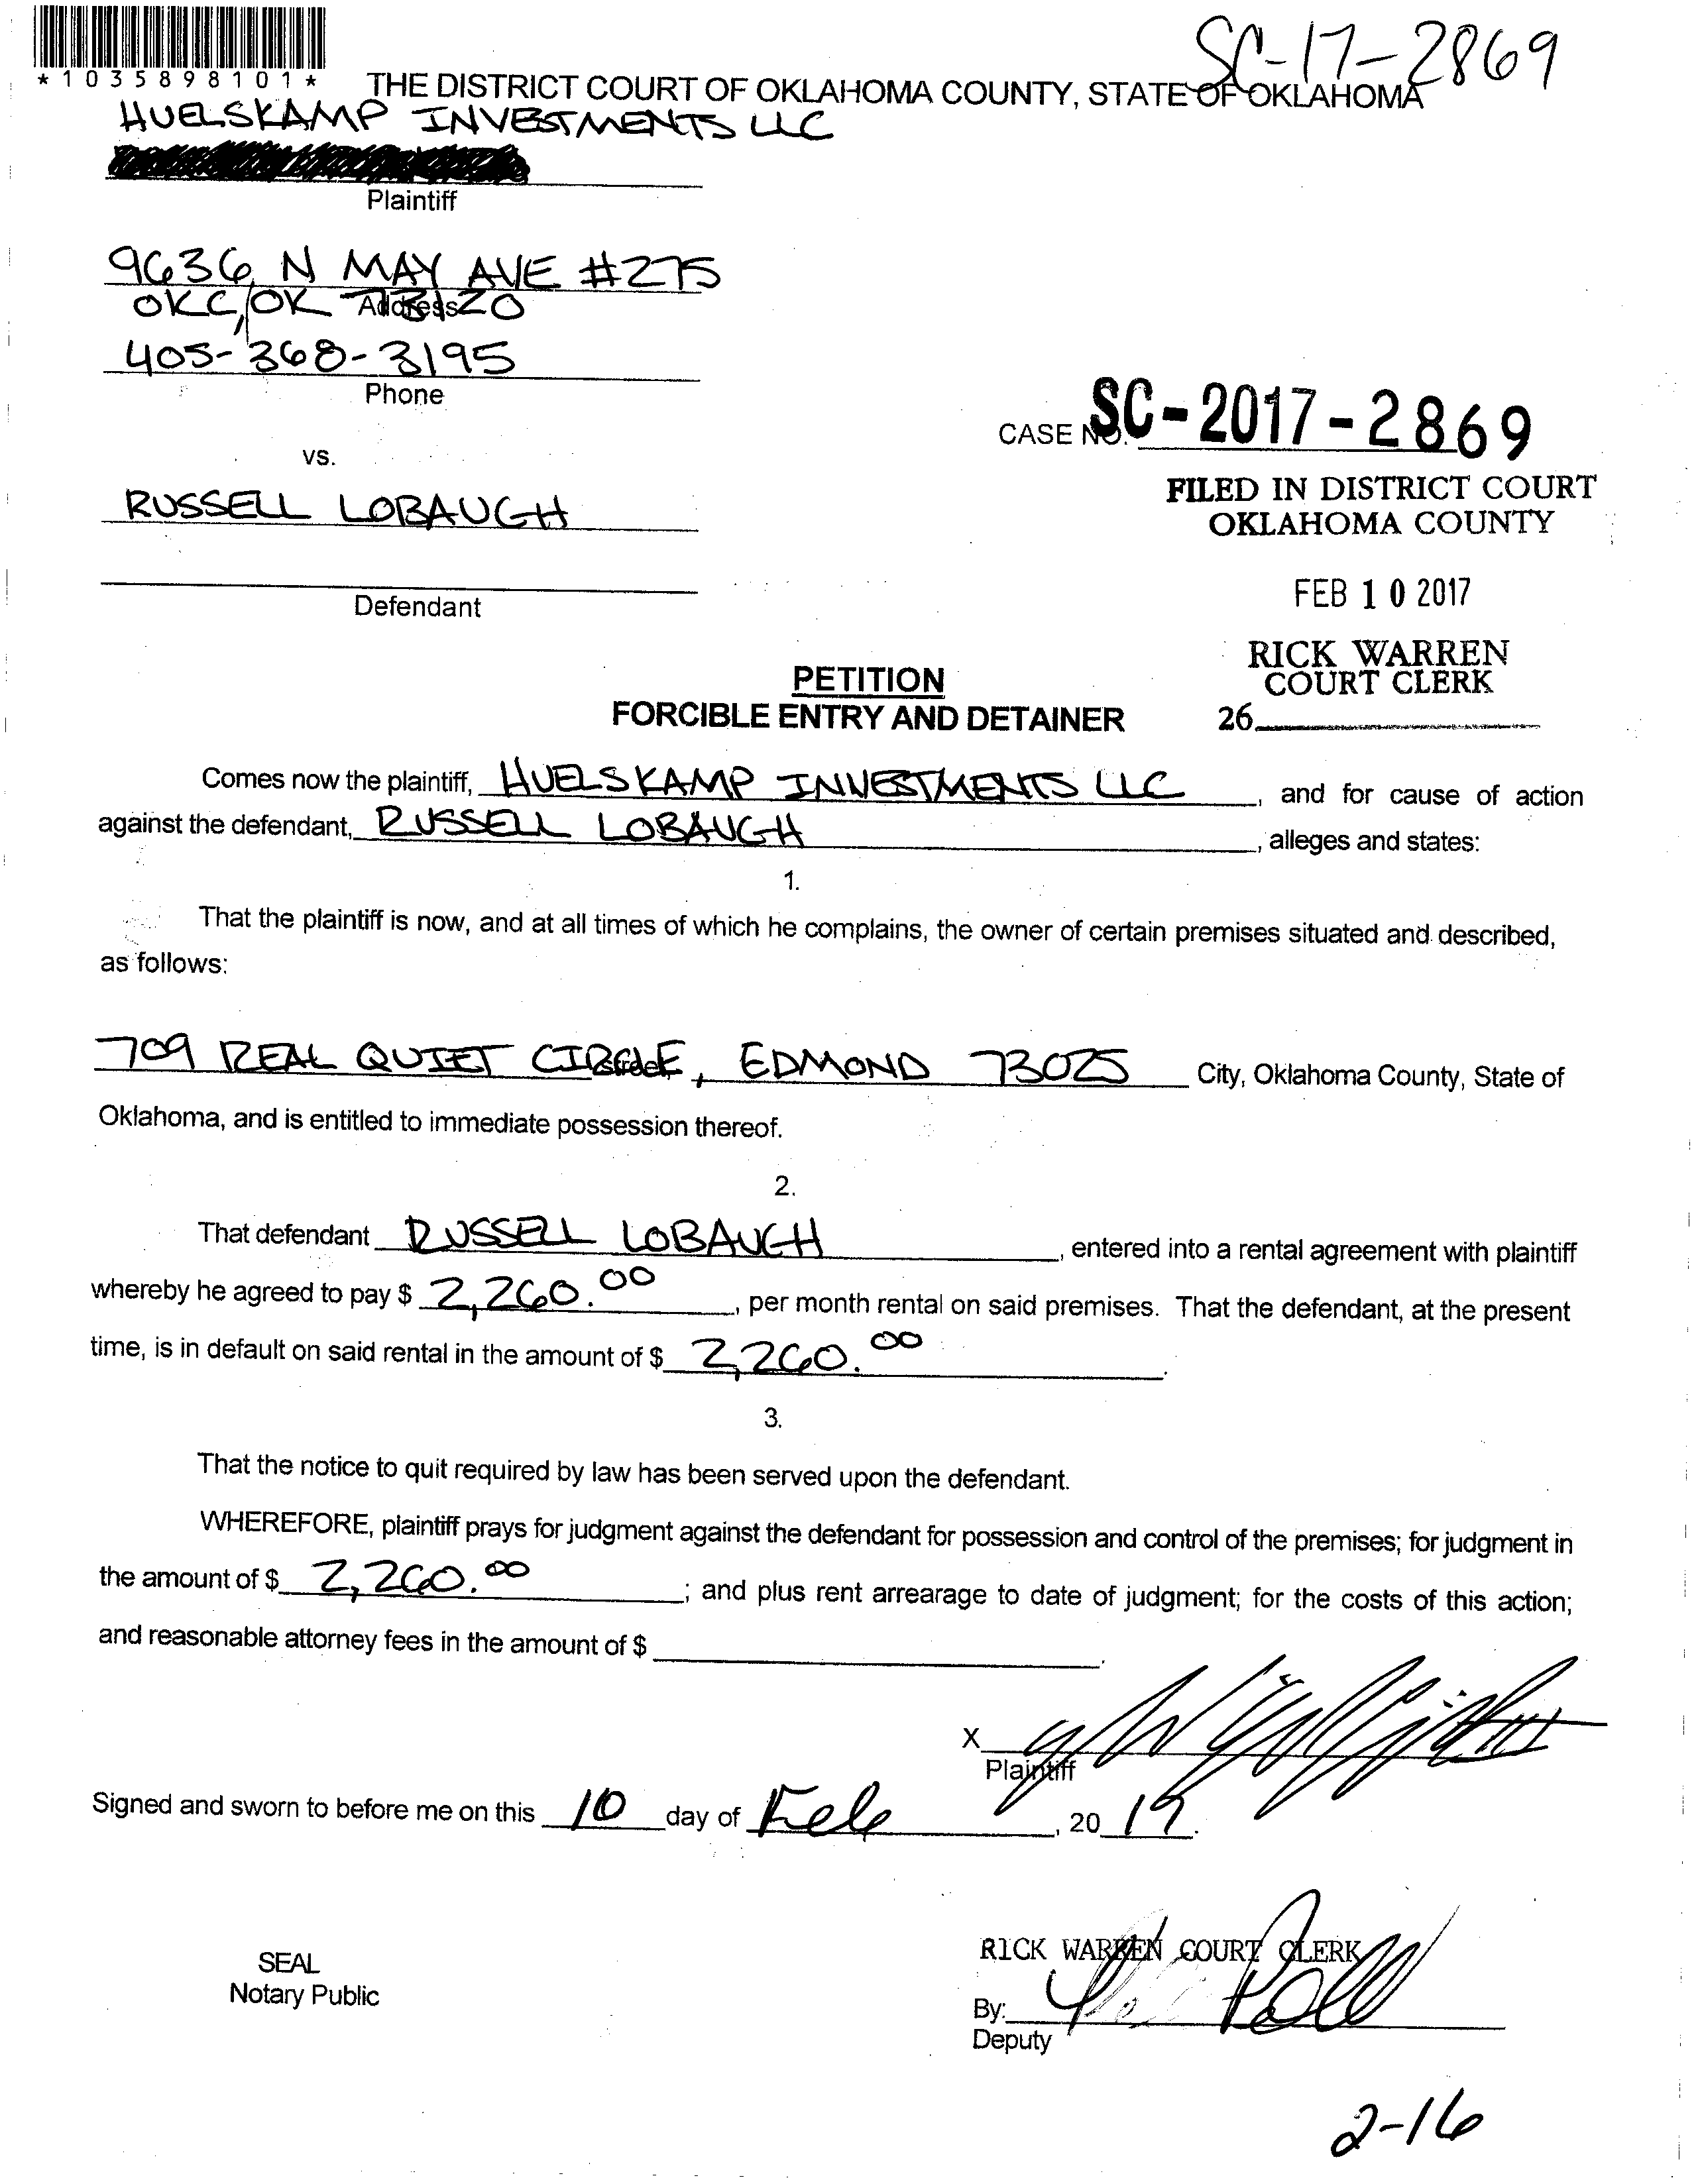 SC-17-2869
*1035898101*
THE DISTRICT COURT OF OKLAHOMA COUNTY, STATE OF OKLAHOMA
HUELSKAMP INVESTMENTS LLC
Plaintiff
9636 N MAY AVE #275
OKC, OK 73120
Address
405-368-3195
Phone
CASE NO. SC-2017-2869
vs.
FILED IN DISTRICT COURT
OKLAHOMA COUNTY
RUSSELL LOBAUGH
FEB 10 2017
Defendant
RICK WARREN
COURT CLERK
26
PETITION
FORCIBLE ENTRY AND DETAINER
Comes now the plaintiff, HUELSKAMP INVESTMENTS LLC, and for cause of action
against the defendant, RUSSELL LOBAUGH, alleges and states:
1.
That the plaintiff is now, and at all times of which he complains, the owner of certain premises situated and described,
as follows:
709 REAL QUIET CIRCLE, EDMOND 73025 City, Oklahoma County, State of
Street,
Oklahoma, and is entitled to immediate possession thereof.
2.
That defendant RUSSELL LOBAUGH, entered into a rental agreement with plaintiff
whereby he agreed to pay $ 2,260.00, per month rental on said premises. That the defendant, at the present
time, is in default on said rental in the amount of $ 2,260.00.
3.
That the notice to quit required by law has been served upon the defendant.
WHEREFORE, plaintiff prays for judgment against the defendant for possession and control of the premises; for judgment in
the amount of $ 2,260.00; and plus rent arrearage to date of judgment; for the costs of this action;
and reasonable attorney fees in the amount of $.
X
Plaintiff
Signed and sworn to before me on this 10 day of Feb, 2017.
RICK WARREN COURT CLERK
SEAL
Notary Public
By:
Deputy
2-16